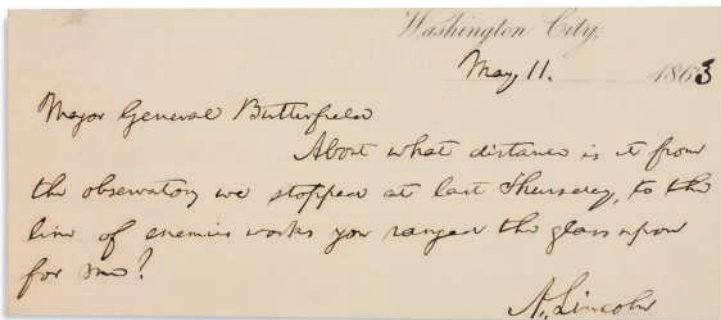 Washington City,
May, 11. 1863
Major General Butterfield
About what distance is it from
the observatory we stopped at last Thursday, to the
line of enemies works you ranged the glass upon
for me?
A. Lincoln